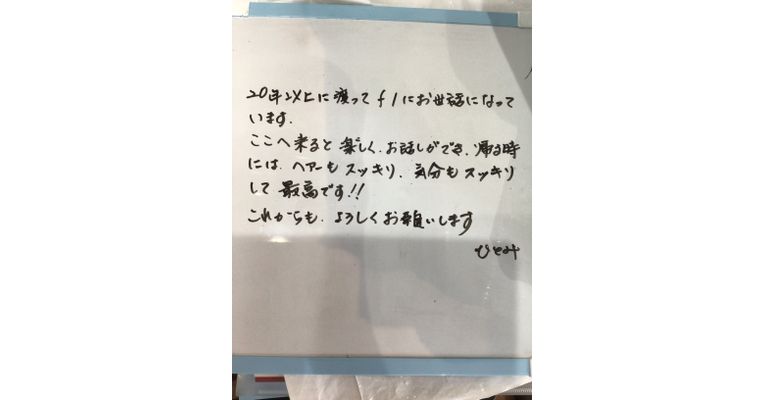 20年以上に渡ってf1にお世話になって
います.
ここへ来ると楽しく、お話しができ、帰る時
には、ヘアーもスッキリ、気分もスッキリ
して最高です!!
これからも、よろしくお願いします
ひとみ